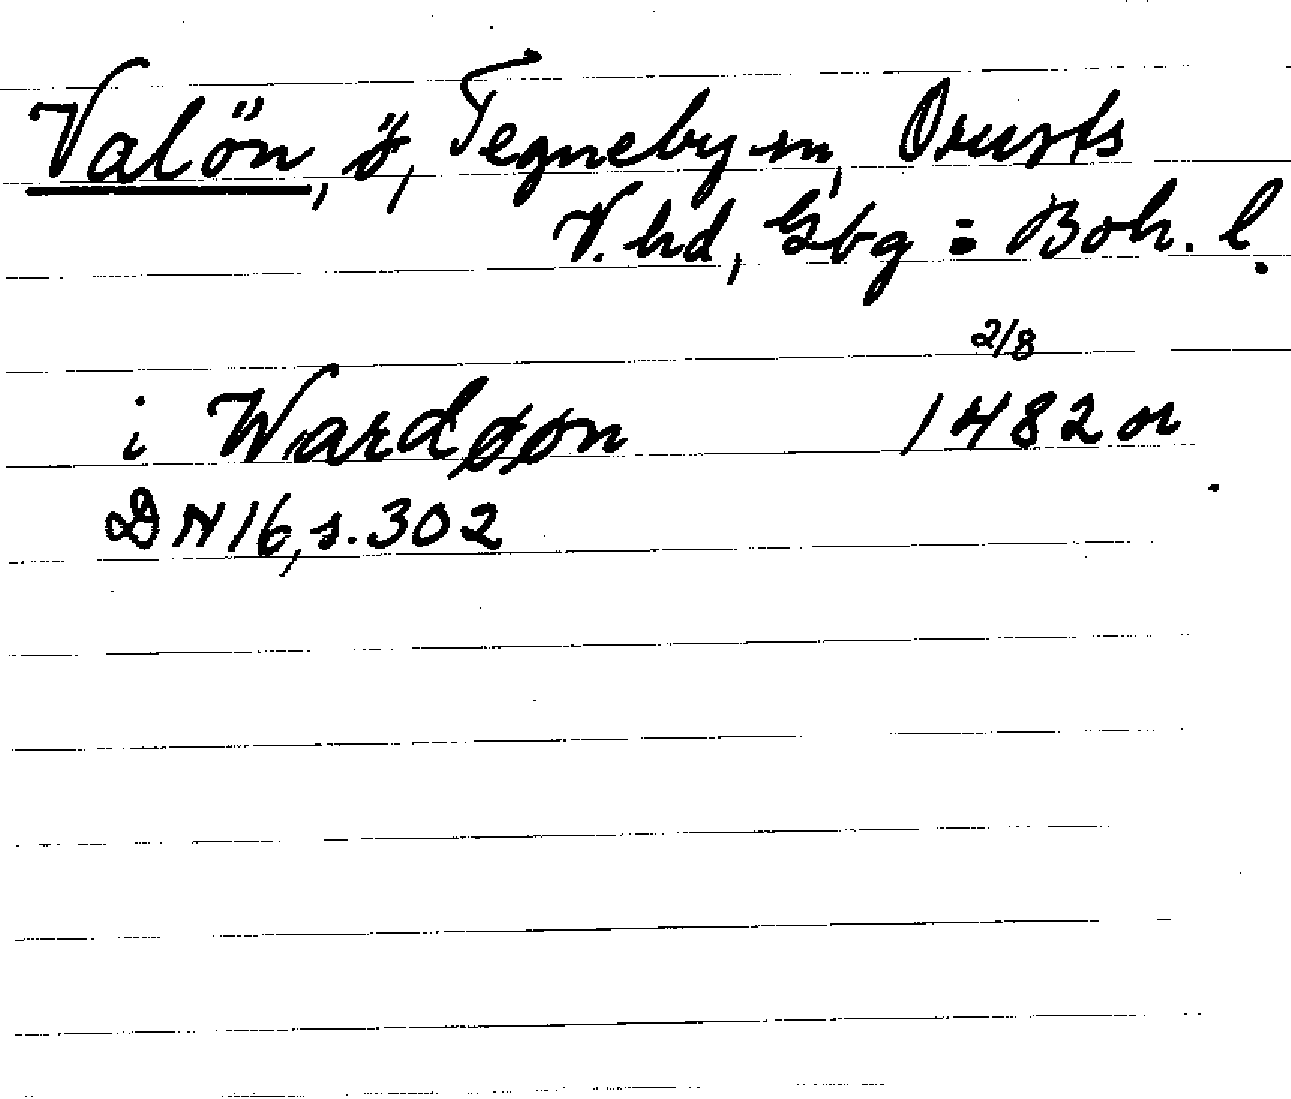 Valön, ö, Tegneby sn, Orusts
V. hd, Gbg = Boh. l.
2/8
i Wardøøn 1482 or
DN 16, s. 302